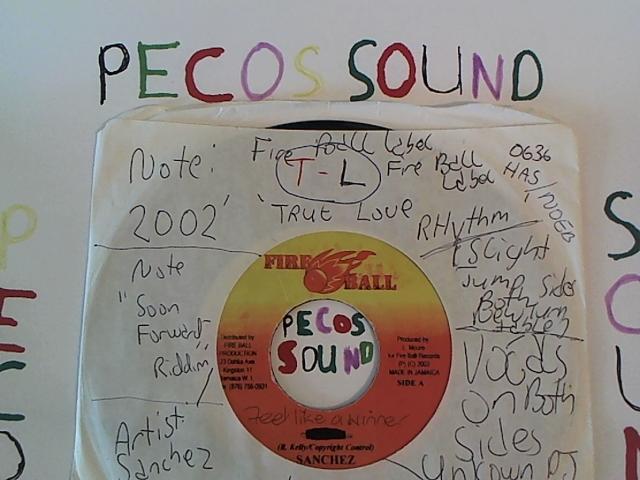 PECOS SOUND
Note:
2002'
Fire Ball Label
T-L
Fire Ball
Label
'TRUE LOVE
0636
HAS
RHYTHM
Slight
Jump Sides
Both
Note
"Soon
Forward"
Riddim
FIRE BALL
PECOS
SOUND
Distributed by
FIRE BALL
PRODUCTION
Kingston 11
Jamaica W.I.
Produced by
L. Moore
for Fire Ball Records
(P) (C) 2003
MADE IN JAMAICA
SIDE A
Feel like a winner
(R. Kelly/Copyright Control)
SANCHEZ
Vocals
On Both
Sides
Unkown DJ
Artist:
Sanchez